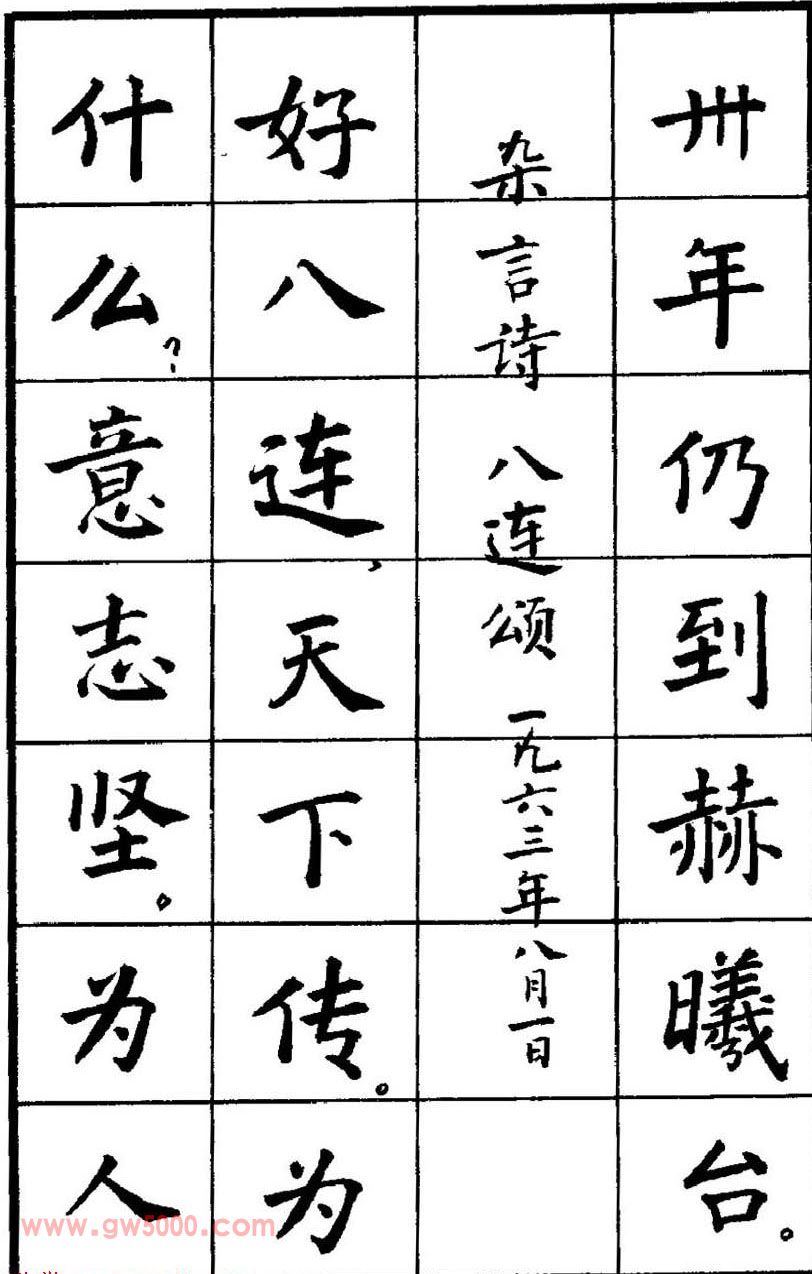 卅年仍到赫曦台。
杂言诗 八连颂 一九六三年八月一日
好八连，天下传。为
什么？意志坚。为人
www.gw5000.com